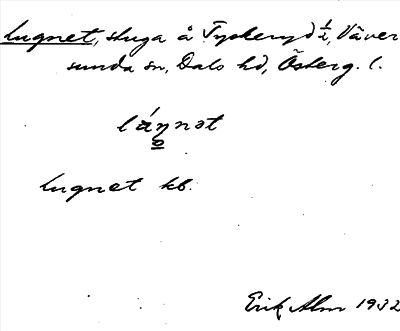 Lugnet, stuga å Tyskeryd ½, Väver
sunda sn, Dals hd, Österg. l.
lúŋnət
o
Lugnet kb.
Erik Alm 1932